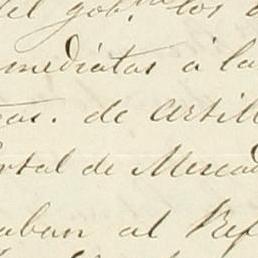 del gob.no los
mediatas á la
cas. de Artill
ortal de Mercad
aban al Ref